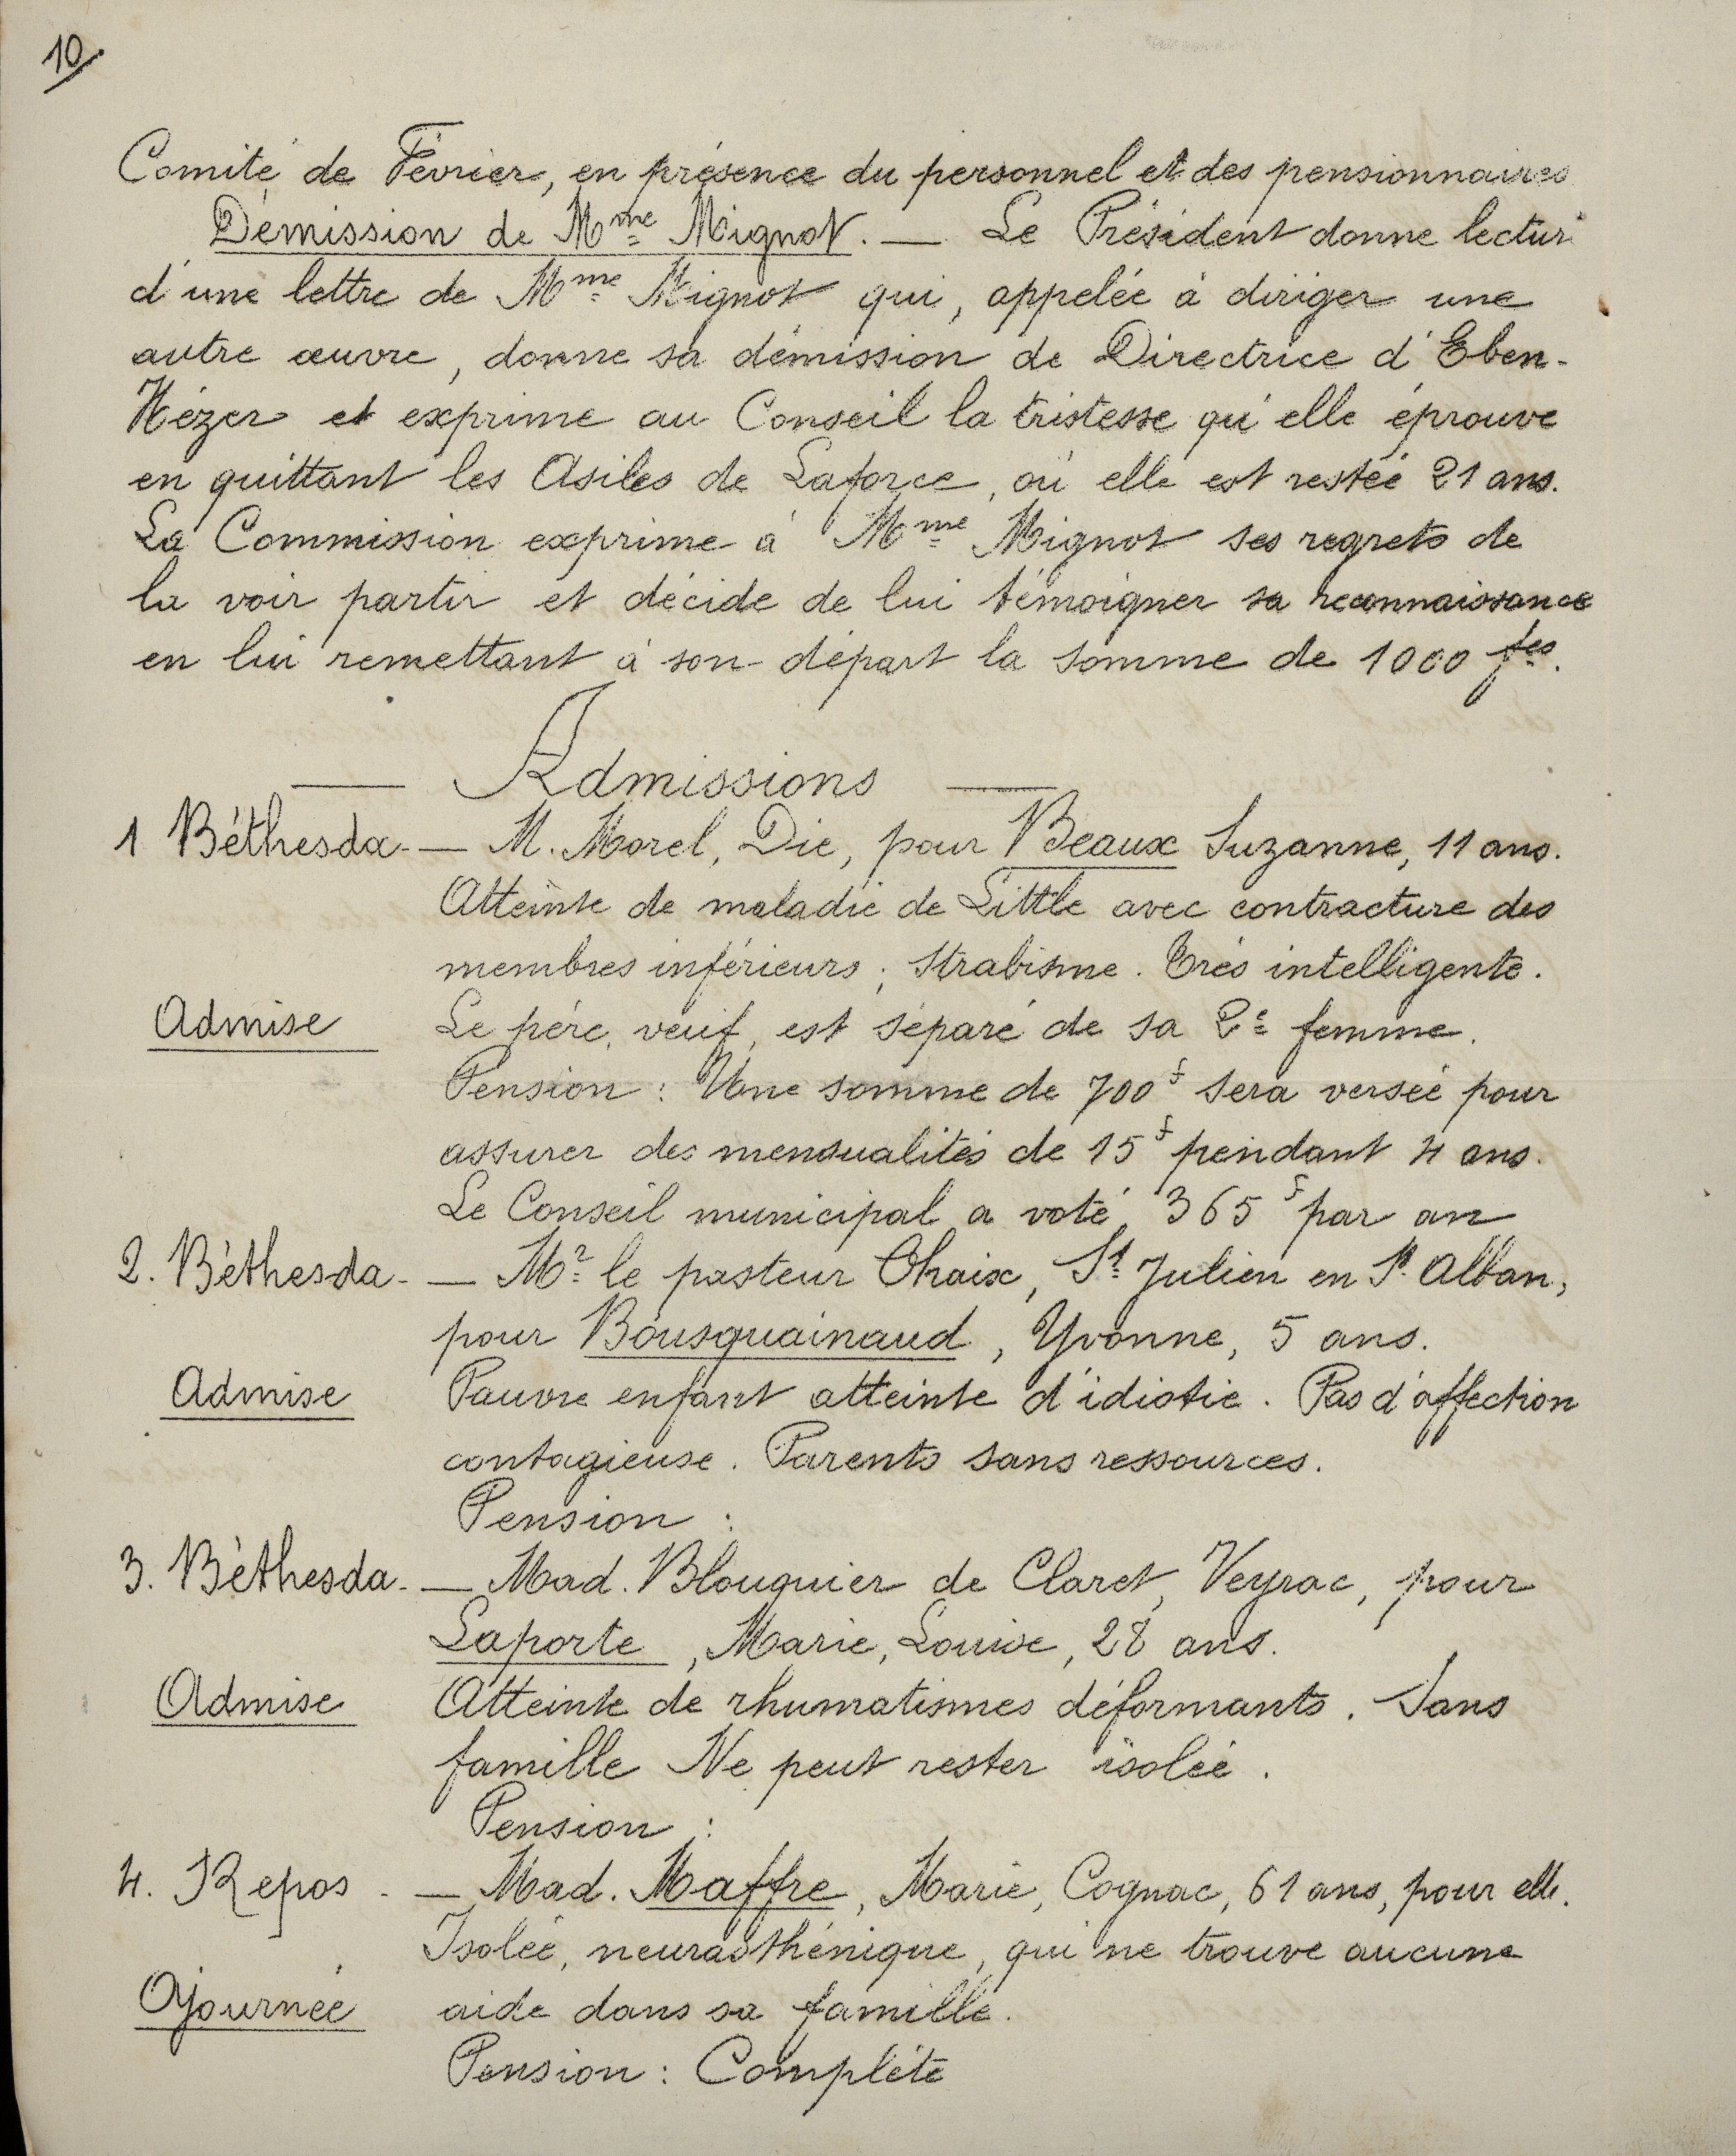 10
Comité de Février, en présence du personnel et des pensionnaires
Démission de Mme Mignot. — Le Président donne lectur
d'une lettre de Mme Mignot qui, appelée à diriger une
autre œuvre, donne sa démission de Directrice d'Eben-
Hézer et exprime au Conseil la tristesse qu'elle éprouve
en quittant les Asiles de Laforce, où elle est restée 21 ans.
La Commission exprime à Mme Mignot ses regrets de
la voir partir et décide de lui témoigner sa reconnaissance
en lui remettant à son départ la somme de 1000 fcs.
— Admissions —
1 Béthesda - — M. Morel, Die, pour Beaux Suzanne, 11 ans.
Atteinte de maladie de Little avec contracture des
membres inférieurs ; strabisme. Très intelligente.
Admise Le père, veuf, est séparé de sa 2e femme.
Pension : Une somme de 700 f sera versée pour
assurer des mensualités de 15 f pendant 4 ans.
Le Conseil municipal a voté 365 f par an
2. Béthesda - — Mr le pasteur Chaix, St Julien en St. Alban,
pour Bousquainaud, Yvonne, 5 ans.
Admise Pauvre enfant atteinte d'idiotie. Pas d'affection
contagieuse. Parents sans ressources.
Pension :
3. Béthesda - — Mad. Blouquier de Claret, Veyrac, pour
Laporte, Marie, Louise, 28 ans.
Admise Atteinte de rhumatismes déformants. Sans
famille Ne peut rester isolée.
Pension :
4. Repos - — Mad. Maffre, Marie, Cognac, 61 ans, pour elle.
Isolée, neurasthénique, qui ne trouve aucune
Ajournée aide dans sa famille.
Pension : Complète